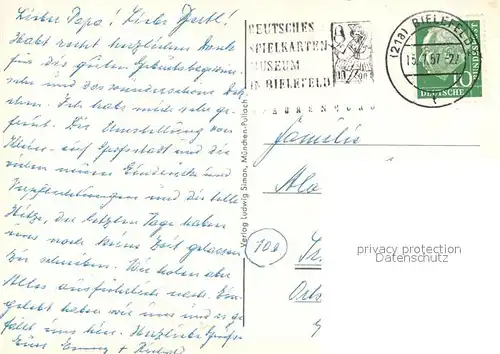 Lieber Papa! Liebe Gretl!
Habt recht herzlichen Dank
für die guten Geburtstagswünsche
und das wunderschöne
Ich habe mich sehr ge-
freut. Die Umstellung von
Klein- auf Großstadt und die
vielen neuen Eindrücke und
Verpflichtungen und die tolle
Hitze, die letzten Tage haben
uns noch keine Zeit gelassen
zu schreiben. Wir holen aber
Alles ausführlich nach. Ein-
gelebt haben wir uns und es ge-
fällt uns hier. Herzliche Grüße
Eure +
DEUTSCHES
SPIELKARTEN
MUSEUM
IN BIELEFELD
(21a) BIELEFELD
15.7.67
10
DEUTSCHE
Verlag Ludwig Simon, München-Pullach
Familie
Ala
108
privacy protection
Datenschutz